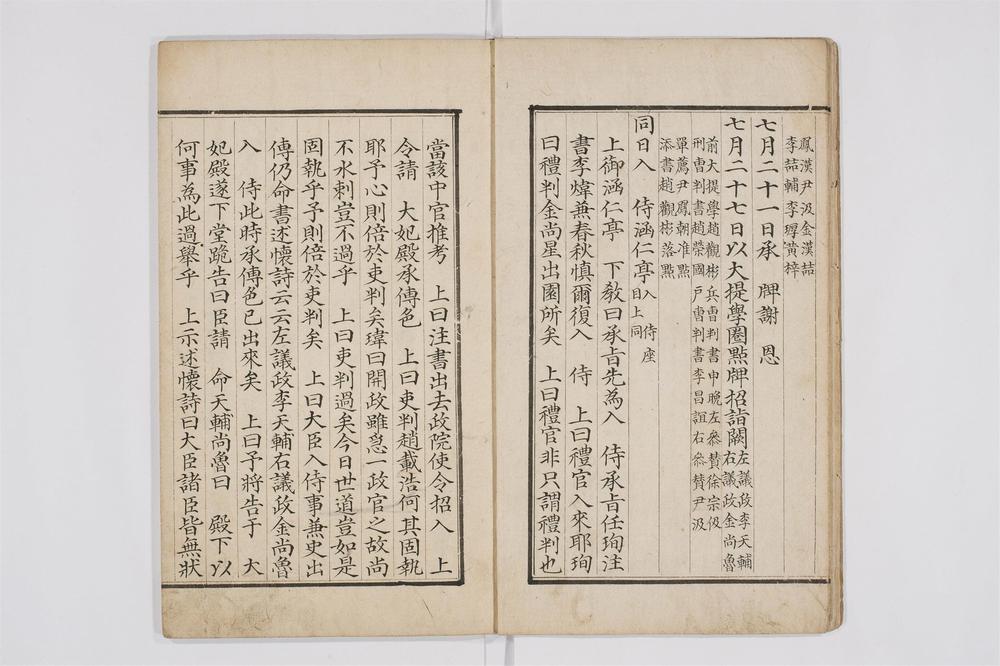 鳳漢尹汲金漢喆
李喆輔李墠黃梓
七月二十一日承 牌謝 恩
七月二十七日以大提學圈點牌招詣闕左議政李天輔
右議政金尚魯
前大提學趙觀彬兵曺判書申晚左參賛徐宗伋
刑曺判書趙榮國戶曺判書李昌誼右參賛尹汲
單薦尹鳳朝准點
添書趙觀彬落點
同日入 侍涵仁亭入 侍座
目上同
上御涵仁亭 下敎曰承旨先為入 侍承旨任珣注
書李煒兼春秋愼爾復入 侍 上曰禮官入來耶珣
曰禮判金尚星出園所矣 上曰禮官非只謂禮判也
當該中官推考 上曰注書出去政院使令招入 上
令請 大妃殿承傳色 上曰吏判趙載浩何其固執
耶予心則倍於吏判矣瑋曰開政雖急一政官之故尚
不水剌豈不過乎 上曰吏判過矣今日世道豈如是
固執乎予則倍於吏判矣 上曰大臣入侍事兼史出
傳仍命書述懷詩云云左議政李天輔右議政金尚魯
入 侍此時承傳色已出來矣 上曰予將告于 大
妃殿遂下堂跪告曰臣請 命天輔尚魯曰 殿下以
何事為此過擧乎 上示述懷詩曰大臣諸臣皆無狀